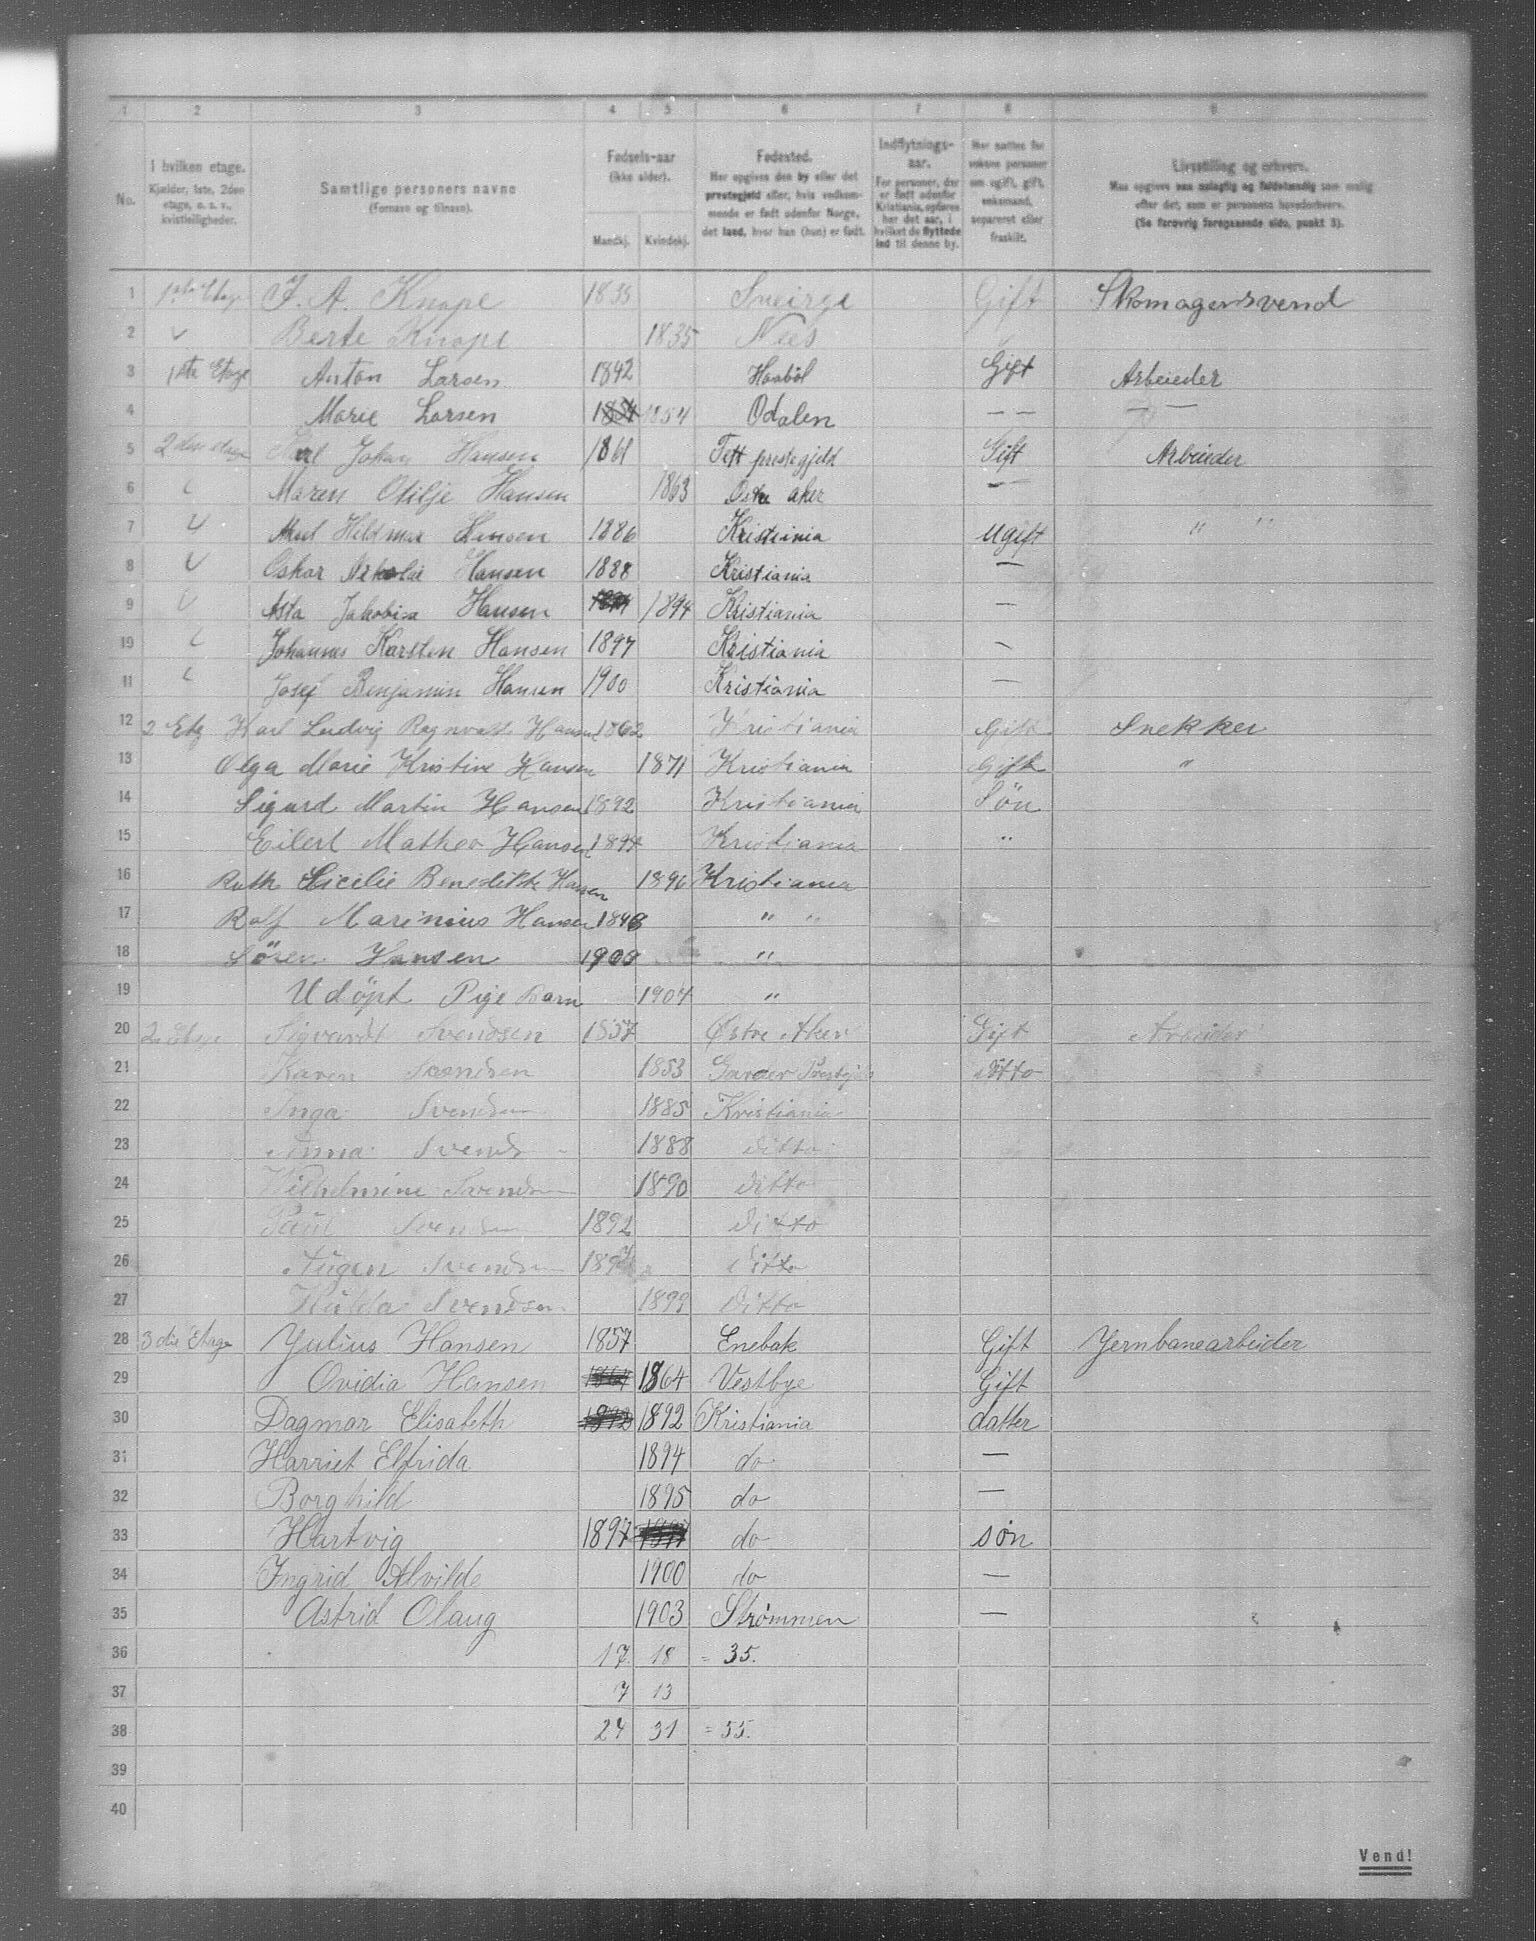 1 2 3 4 5 6 7 8 9
No. I hvilken etage. Kjælder, 1ste, 2den etage, o. s. v., kvistleiligheder. Samtlige personers navne (Fornavn og tilnavn). Fødsels-aar (ikke alder). Mandkj. Kvindekj. Fødested. Her opgives den by eller det prestegjeld eller, hvis vedkommende er født udenfor Norge, det land, hvor han (hun) er født. Indflytnings-aar. For personer, der er født udenfor Kristiania, opføres her det aar, i hvilket de flyttede ind til denne by. Her sættes for voksne personer om ugift, gift, enkemand, separeret eller fraskilt. Livsstilling og erhverv. Man opgive saa nøiagtig og fuldstændig som mulig efter det, som er personens hovederhverv. (Se forøvrig foregaaende side, punkt 3).
1 1ste Etage J. A. Knape 1835 Sveirge Gift Skomagersvend
2 Berte Knape 1835 Nees
3 1ste Etage Anton Larsen 1842 Haabøl Gift Arbeieder
4 Marie Larsen 1854 1854 Odalen — — — —
5 2den etage Karl Johan Hansen 1861 Tett prestegjeld Gift Arbeieder
6 Maren Otilje Hansen 1863 Østre aker —
7 Axel Hildmar Hansen 1886 Kristiania Ugift " "
8 Oskar Nikolai Hansen 1888 Kristiania —
9 Asta Jakobine Hansen 1894 Kristiania —
10 Johannes Karsten Hansen 1897 Kristiania —
11 Josef Benjamin Hansen 1900 Kristiania —
12 2 Etg Karl Ludvig Ragnvald Hansen 1862 Kristiania Gift Snekker
13 Olga Marie Kristine Hansen 1871 Kristiania Gift "
14 Sigurd Martin Hansen 1892 Kristiania Søn
15 Eilert Matheo Hansen 1894 Kristiania "
16 Ruth Sicilie Benedikte Hansen 1896 Kristiania
17 Rolf Marinius Hansen 1898 " "
18 Sören Hansen 1900 "
19 Udöpt Pige Barn 1904 "
20 2. Etage Sigvardt Svendsen 1857 Østre Aker Gift Arbeider
21 Karen Svendsen 1853 Garder Prestgjeld ditto
22 Inga Svendsen 1885 Kristiania
23 Anna Svends 1888 ditto
24 Wilhelmine Svendsen 1890 ditto
25 Paul Svendsen 1892 ditto
26 Augen Svendsen ditto
27 Hulda Svendsen 1899 ditto
28 3die Etage Julius Hansen 1857 Enebak Gift Jernbanearbeider
29 Ovidia Hansen 1864 1864 Vestbye Gift
30 Dagmar Elisabeth 1892 1892 Kristiania datter
31 Harriet Elfrida 1894 do —
32 Borghild 1895 do —
33 Hartvig 1897 do søn
34 Ingrid Alvilde 1900 do —
35 Astrid Olaug 1903 Strømmen —
36 17 18 = 35.
37 7 13
38 24 31 = 55.
39
40
Vend!